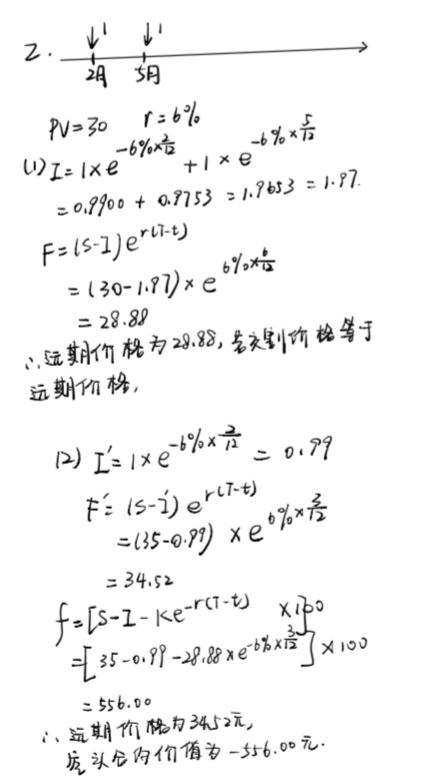 ↓1 ↓1
2.
2月 5月
PV=30 r=6%
(1) I=1×e^{-6%×\frac{2}{12}}+1×e^{-6%×\frac{5}{12}}
=0.9900+0.9753=1.9653=1.97.
F=(S-I)e^{r(T-t)}
=(30-1.97)×e^{6%×\frac{6}{12}}
=28.88
∴远期价格为28.88,若交割价格等于
远期价格,
(2) I'=1×e^{-6%×\frac{2}{12}}=0.99
F'=(S-I')e^{r(T-t)}
=(35-0.99)×e^{6%×\frac{3}{12}}
=34.52
f=[S-I-Ke^{-r(T-t)}]×100
=[35-0.99-28.88×e^{-6%×\frac{3}{12}}]×100
=556.00
∴远期价格为34.52元,
空头合约价值为-556.00元.